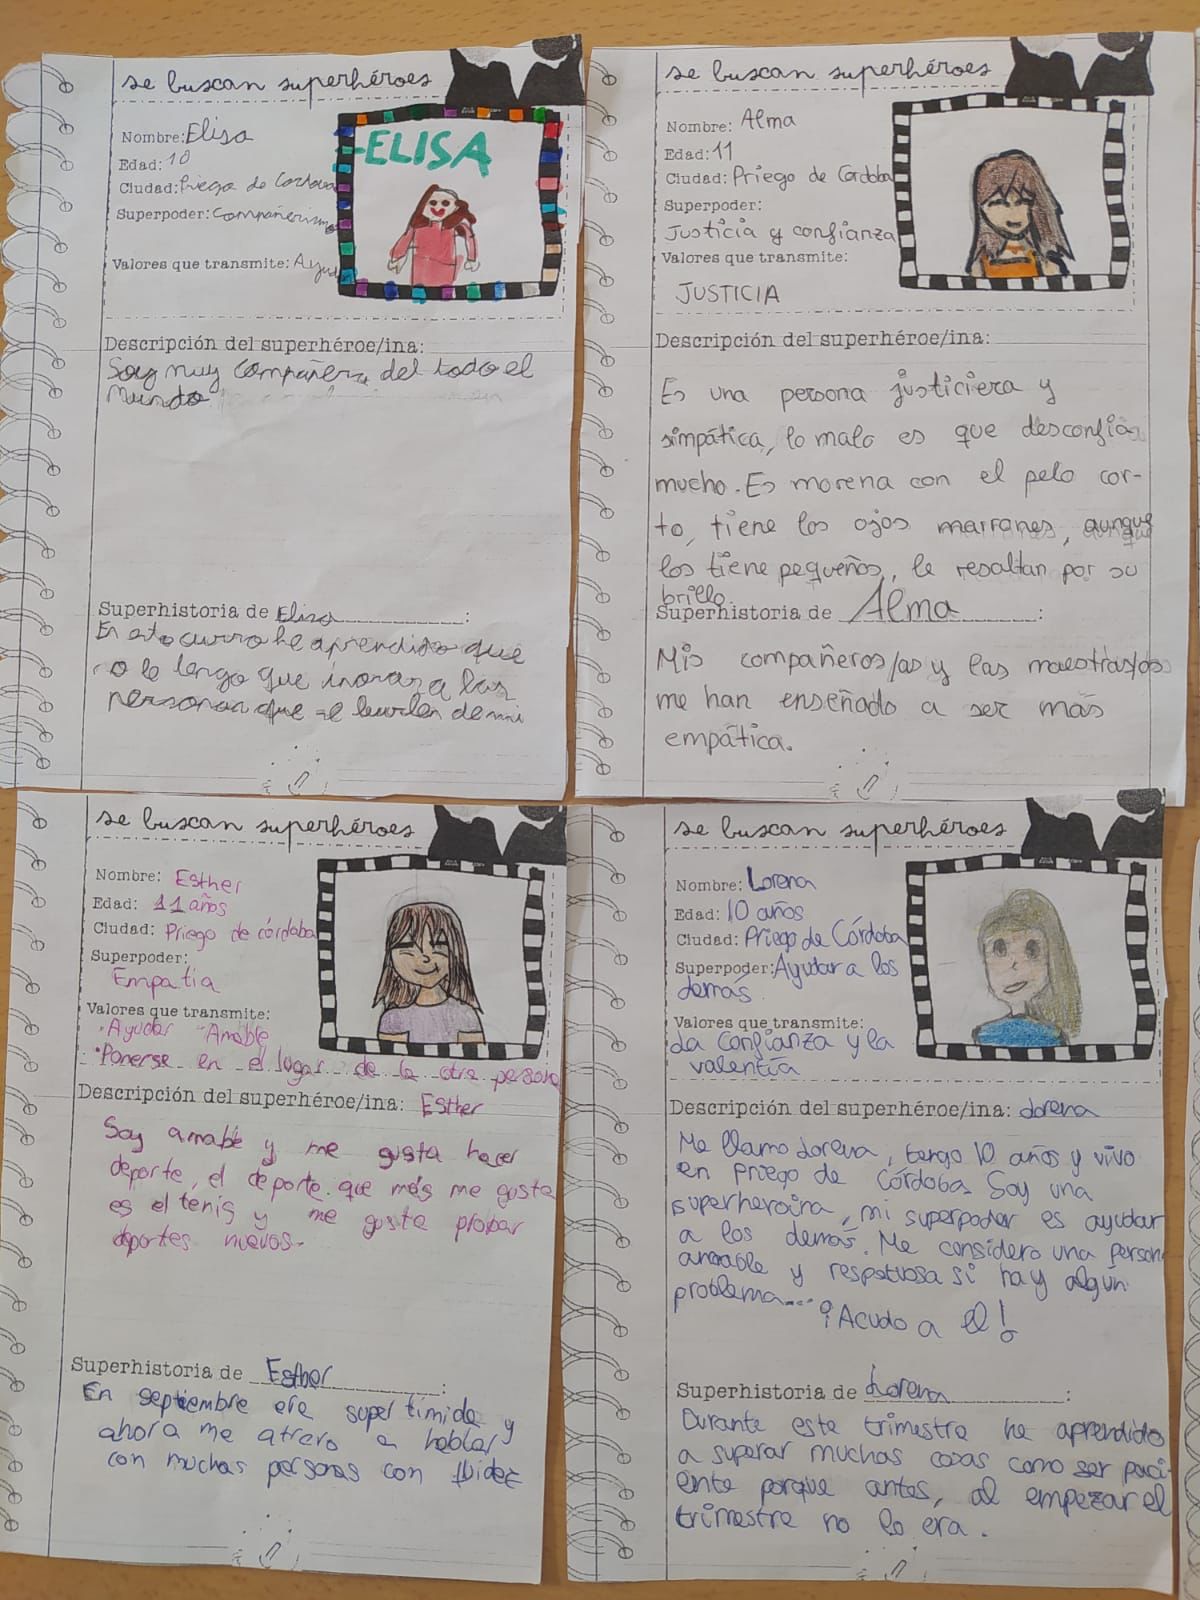 se buscan superhéroes
Nombre: Elisa
Edad: 10
Ciudad: Priego de Cordova
Superpoder: Compañerismo
Valores que transmite: Ayudar
ELISA
Descripción del superhéroe/ina:
Soy muy compañera del todo el
Mundo
Superhistoria de Elisa:
En esto curso he aprendido que
lo tengo que inorar a las
personas que se burlen de mi
se buscan superhéroes
Nombre: Alma
Edad: 11
Ciudad: Priego de Cordoba
Superpoder:
Justicia y confianza
Valores que transmite:
JUSTICIA
Descripción del superhéroe/ina:
Es una persona justiciera y
simpática, lo malo es que desconfía
mucho. Es morena con el pelo cor-
to, tiene los ojos marrones, aunque
los tiene pequeños, le resaltan por su
brillo.
Superhistoria de Alma:
Mis compañeros/as y las maestras/os
me han enseñado a ser más
empática.
se buscan superhéroes
Nombre: Esther
Edad: 11 años
Ciudad: Priego de córdoba
Superpoder:
Empatia
Valores que transmite:
·Ayudar ·Amable
·Ponerse en el lugar de la otra persona
Descripción del superhéroe/ina: Esther
Soy amable y me gusta hacer
deporte, el deporte que más me gusta
es el tenis y me gusta probar
deportes nuevos.
Superhistoria de Esther:
En septiembre era super tímida y
ahora me atrevo a hablar
con muchas personas con fluidez
se buscan superhéroes
Nombre: Lorena
Edad: 10 años
Ciudad: Priego de Córdoba
Superpoder: Ayudar a los
demás
Valores que transmite:
La confianza y la
valentía
Descripción del superhéroe/ina: Lorena
Me llamo Lorena, tengo 10 años y vivo
en Priego de Córdoba. Soy una
superheroína, mi superpoder es ayudar
a los demás. Me considero una person
amable y respetuosa si hay algún
problema... ¡Acudo a él!
Superhistoria de Lorena:
Durante este trimestre he aprendido
a superar muchas cosas como ser paci-
ente porque antes, al empezar el
trimestre no lo era.